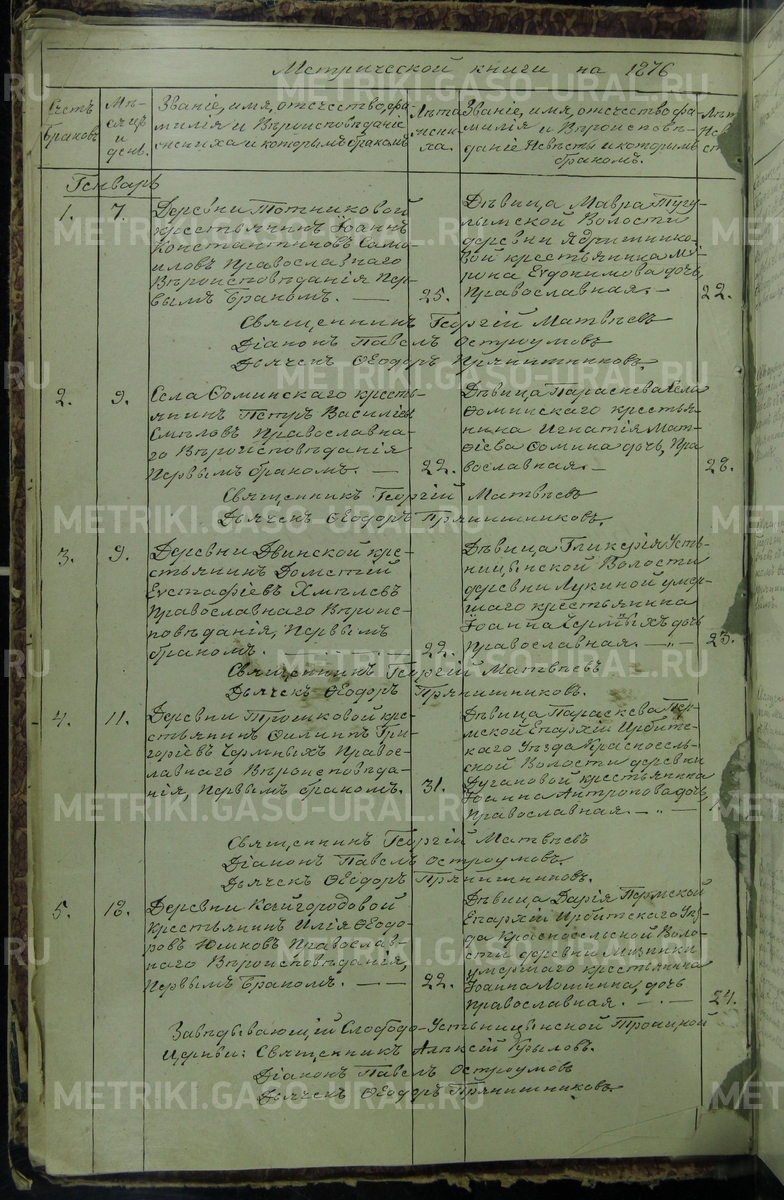 Метрической книги на 1876
Счетъ Браковъ
Мѣсяцъ и день.
Званіе, имя, отчество, фамилія и Вѣроисповѣданіе жениха и которымъ бракомъ
Лѣта жениха.
Званіе, имя, отчество, фамилія и Вѣроисповѣданіе Невѣсты и которымъ бракомъ.
Лѣт Нев ст
Генварь
1. 7. Деревни Тотниковой
крестьянинъ Іоаннъ
Константиновъ Само-
иловъ Православнаго
Вѣроисповѣданія Пер-
вымъ бракомъ. — 25.
Дѣвица Мавра Тугу-
лымской Волости
деревни Ядрышнико-
вой крестьянина Мѵ-
рона Евдокимова дочь,
Православная. — 22.
Священникъ Георгій Матвѣевъ
Діаконъ Павелъ Остроумовъ
Дьячекъ Ѳеодоръ Прянишниковъ.
2. 9. Села Ѳоминскаго кресть-
янинъ Петръ Василіевъ
Смѣловъ Православна-
го Вѣроисповѣданія
Первымъ бракомъ. — 22.
Дѣвица Параскева Села
Ѳоминскаго крестья-
нина Игнатія Мат-
ѳіева Ѳомина дочь, Пра
вославная. —
Священникъ Георгій Матвѣевъ
Дьячекъ Ѳеодоръ Прянишниковъ.
3. 9. Деревни Двинской кре-
стьянинъ Дометій
Евстафіевъ Хмѣлевъ
Православнаго Вѣроис-
повѣданія, Первымъ
бракомъ. 22.
Дѣвица Гликерія Усть-
ницынской Волости
деревни Лукиной умер-
шаго крестьянина
Іоанна Чермныхъ дочь
Православная. — 23.
Священникъ Георгій Матвѣевъ
Дьячекъ Ѳеодоръ Прянишниковъ.
4. 11. Деревни Трошковой кре-
стьянинъ Филиппъ Гри-
горіевъ Чермныхъ Право-
славнаго Вѣроисповѣда-
нія, Первымъ бракомъ. 31.
Дѣвица Параскева Пер-
мской Епархіи Ирбитс-
каго Уѣзда Красносель-
ской Волости деревни
крестьянина
Іоанна Антропова дочь,
Православная. —
Священникъ Георгій Матвѣевъ
Діаконъ Павелъ Остроумовъ.
Дьячекъ Ѳеодоръ Прянишниковъ.
5. 12. Деревни Кайгородовой
крестьянинъ Илія Ѳеодо-
ровъ Православ-
наго Вѣроисповѣданія,
Первымъ Бракомъ. — 22.
Дѣвица Дарія Пермской
Епархіи Ирбитскаго Уѣз-
да Красносельской Воло-
сти деревни Мизинки
умершаго крестьянина
Іоанна дочь
Православная. — 24.
Завѣдывающій Слободо-Устьницынской Троицкой
Церкви: Священникъ Алексій Крыловъ.
Діаконъ Павелъ Остроумовъ
Дьячекъ Ѳеодоръ Прянишниковъ
METRIKI.GASO-URAL.RU